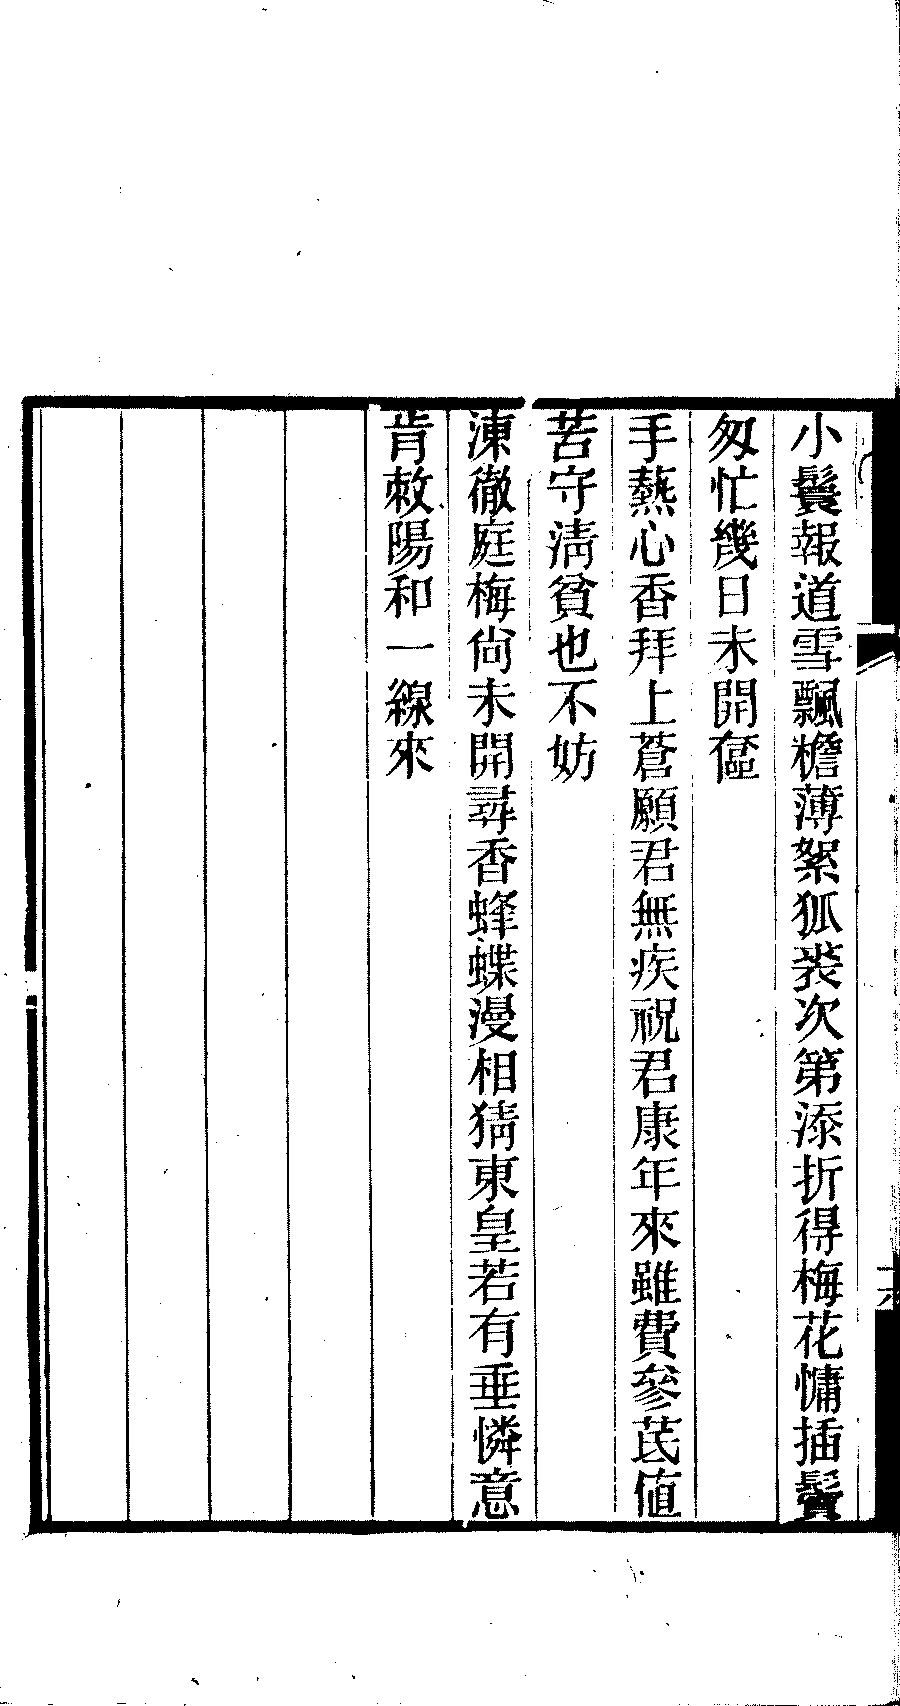 小鬟報道雪飄檐薄絮狐裘次第添折得梅花慵插鬢
匆忙幾日未開奩
手爇心香拜上蒼願君無疾祝君康年來雖費參芪值
苦守清貧也不妨
凍徹庭梅尙未開尋香蜂蝶漫相猜東皇若有垂憐意
肯敕陽和一線來